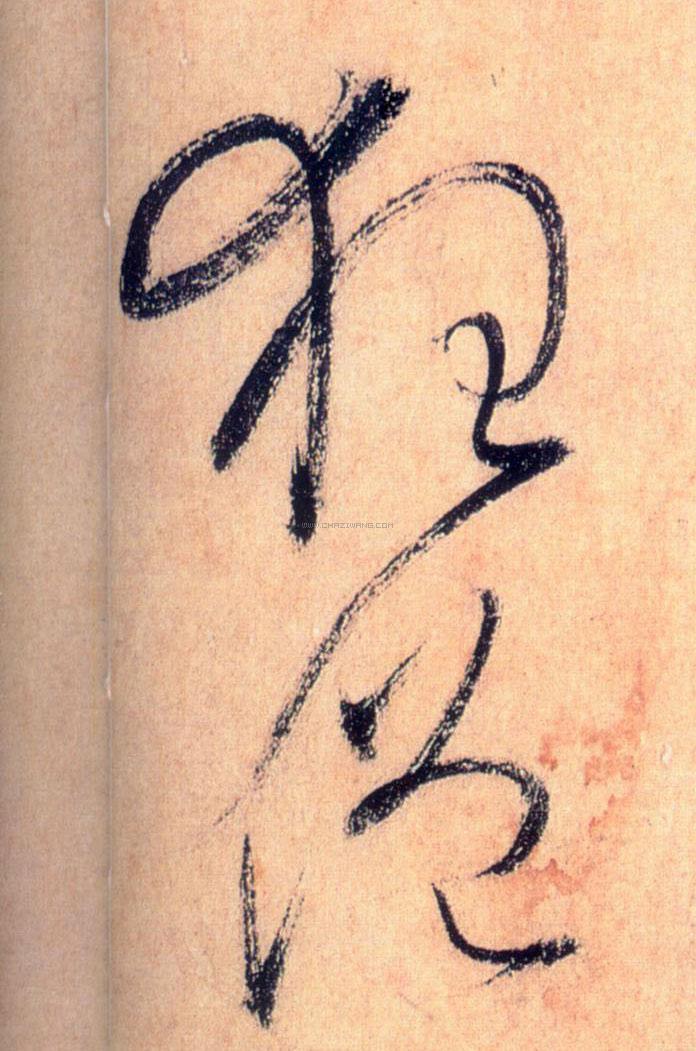 狂僧
WWW.CHAZIWANG.COM